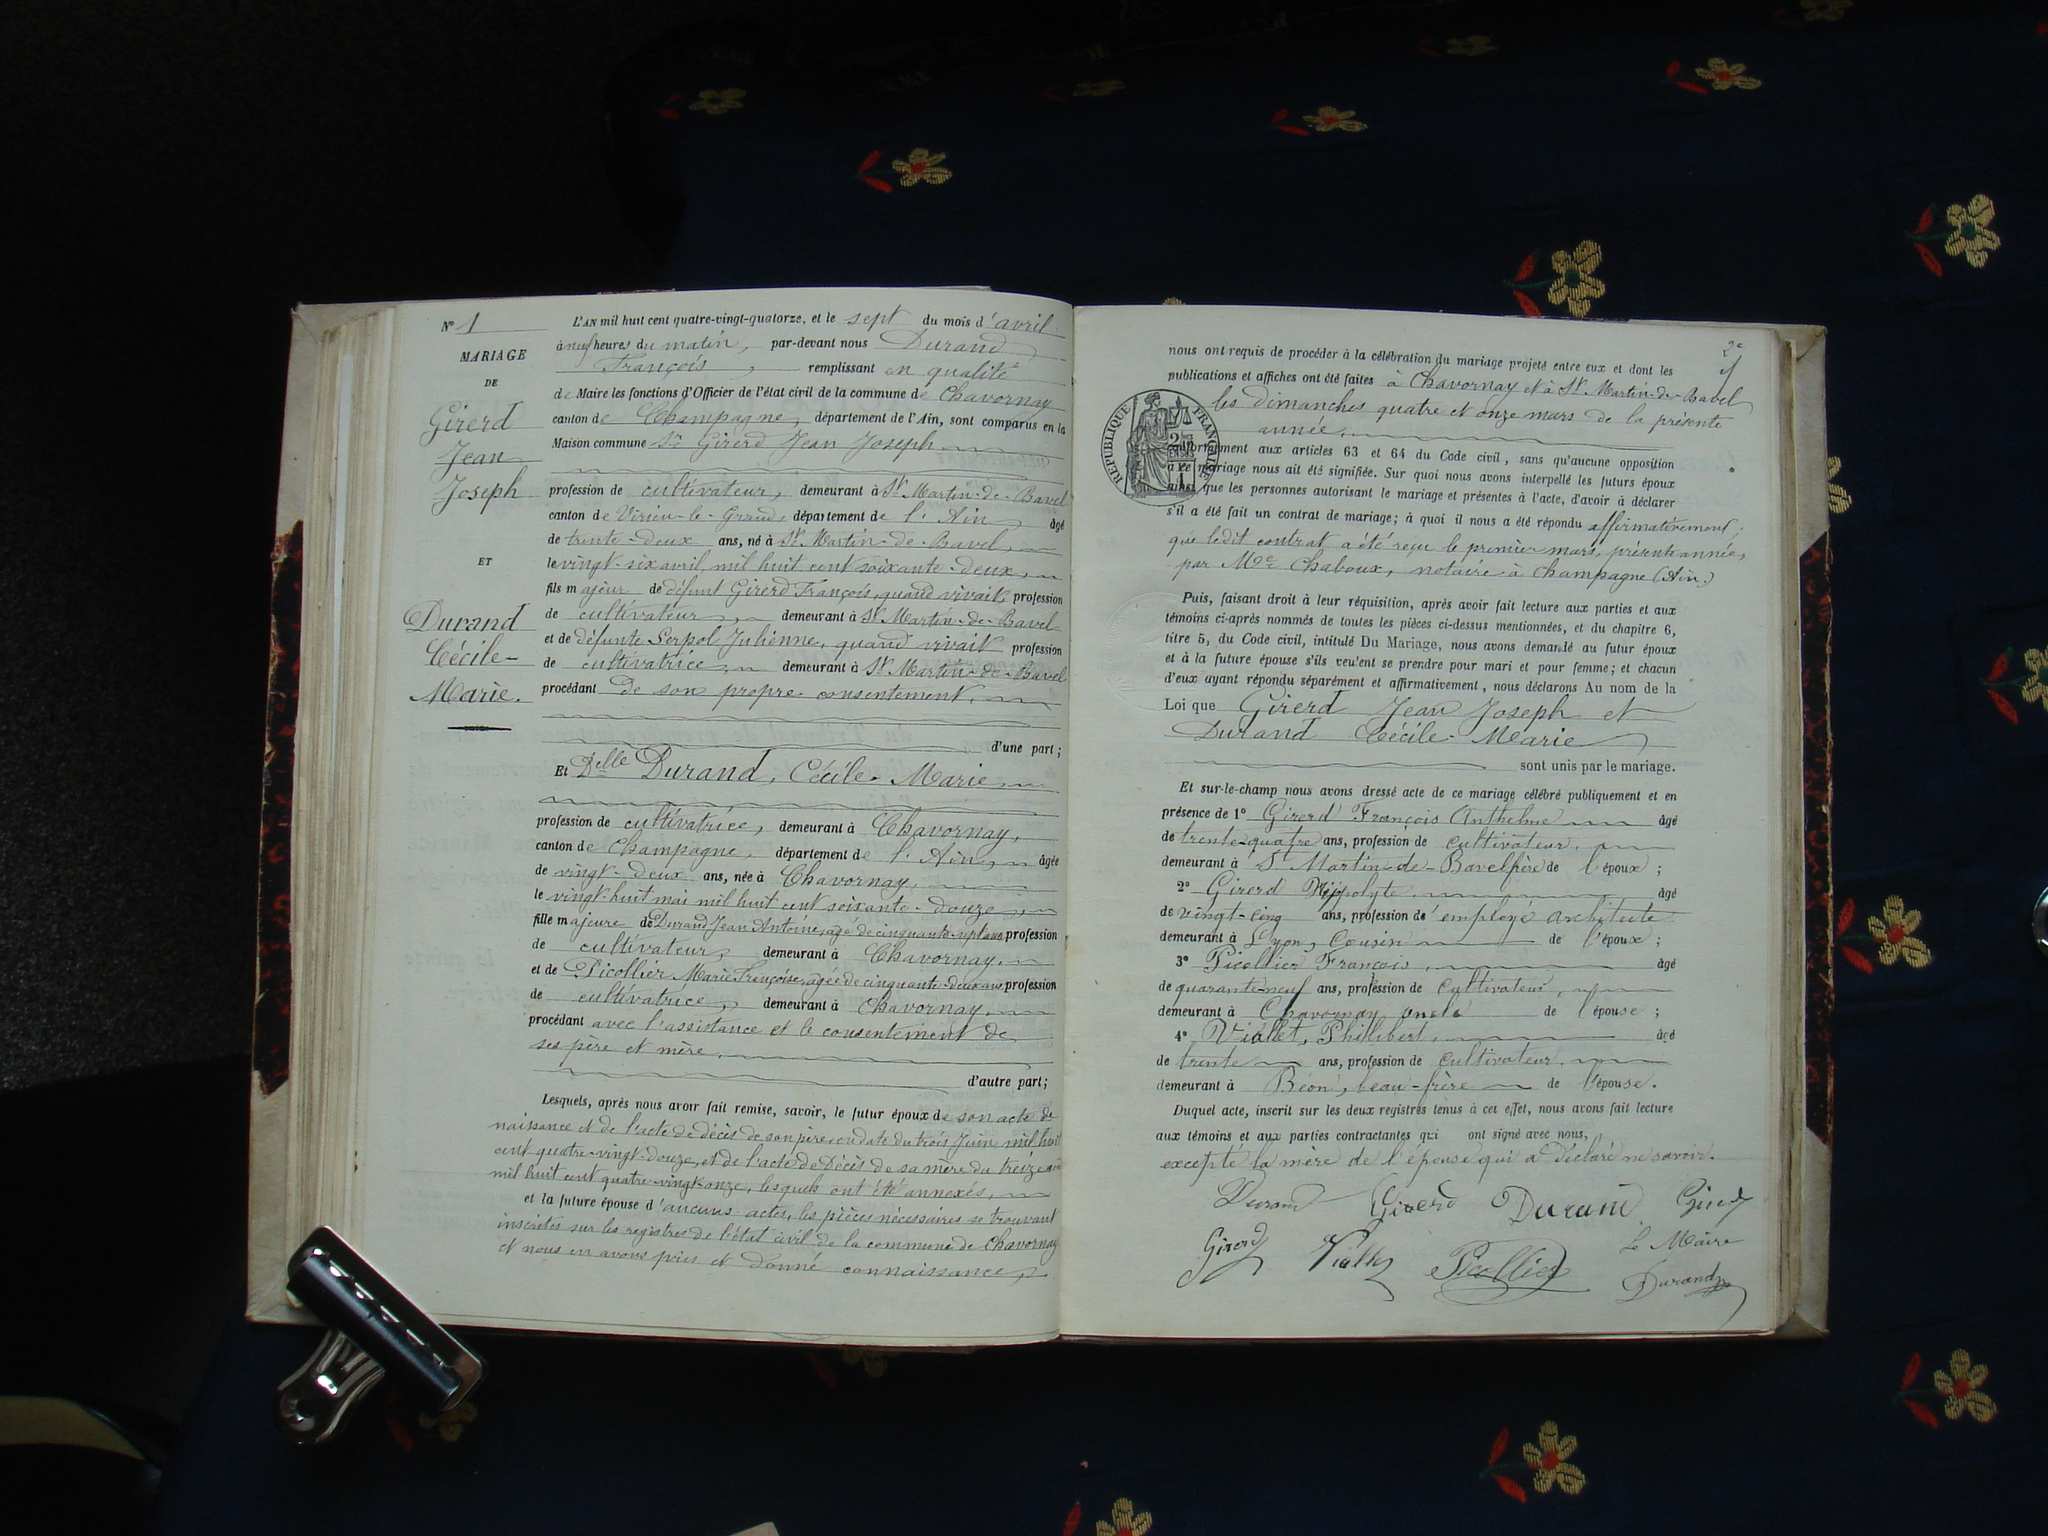 N° 1
MARIAGE
DE
Girerd
Jean
Joseph
ET
Durand
Cécile-
Marie.
L'AN mil huit cent quatre-vingt-quatorze, et le sept du mois d'avril
à neuf heures du matin, par-devant nous Durand
François, remplissant en qualité
de Maire les fonctions d'Officier de l'état civil de la commune de Chavornay
canton de Champagne, département de l'Ain, sont comparus en la
Maison commune Sr Girerd Jean Joseph
profession de cultivateur, demeurant à St Martin-de-Bavel
canton de Virieu-le-Grand, département de l'Ain âgé
de trente-deux ans, né à St Martin-de-Bavel,
le vingt-six avril, mil huit cent soixante-deux,
fils majeur de défunt Girerd François, quand vivait, profession
de cultivateur, demeurant à St Martin-de-Bavel
et de défunte Serpol Julienne, quand vivait profession
de cultivatrice, demeurant à St Martin-de-Bavel
procédant de son propre consentement,
d'une part;
Et Delle Durand, Cécile-Marie
profession de cultivatrice, demeurant à Chavornay,
canton de Champagne, département de l'Ain, âgée
de vingt-deux ans, née à Chavornay,
le vingt-huit mai mil huit cent soixante-douze,
fille majeure de Durand Jean Antoine, âgé de cinquante-sept ans, profession
de cultivateur, demeurant à Chavornay,
et de Picollier Marie Françoise, âgée de cinquante-deux ans, profession
de cultivatrice, demeurant à Chavornay,
procédant avec l'assistance et le consentement de
ses père et mère,
d'autre part;
Lesquels, après nous avoir fait remise, savoir, le futur époux de son acte de
naissance et de l'acte de décès de son père en date du trois Juin mil huit
cent quatre-vingt-douze, et de l'acte de Décès de sa mère du treize
mil huit cent quatre-vingt-onze, lesquels ont été annexés,
et la future épouse d'aucuns actes, les pièces nécessaires se trouvant
inscrites sur les registres de l'état civil de la commune de Chavornay
et nous en avons pris et donné connaissance,
2e
nous ont requis de procéder à la célébration du mariage projeté entre eux et dont les
publications et affiches ont été faites à Chavornay et à St Martin-de-Bavel
les dimanches quatre et onze mars de la présente
année,
RÉPUBLIQUE FRANÇAISE
conformément aux articles 63 et 64 du Code civil, sans qu'aucune opposition
à ce mariage nous ait été signifiée. Sur quoi nous avons interpellé les futurs époux
ainsi que les personnes autorisant le mariage et présentes à l'acte, d'avoir à déclarer
s'il a été fait un contrat de mariage; à quoi il nous a été répondu affirmativement,
que ledit contrat a été reçu le premier mars, présente année,
par Me Chaboux, notaire à Champagne (Ain.)
Puis, faisant droit à leur réquisition, après avoir fait lecture aux parties et aux
témoins ci-après nommés de toutes les pièces ci-dessus mentionnées, et du chapitre 6,
titre 5, du Code civil, intitulé Du Mariage, nous avons demandé au futur époux
et à la future épouse s'ils veulent se prendre pour mari et pour femme; et chacun
d'eux ayant répondu séparément et affirmativement, nous déclarons Au nom de la
Loi que Girerd Jean Joseph et
Durand Cécile-Marie
sont unis par le mariage.
Et sur-le-champ nous avons dressé acte de ce mariage célébré publiquement et en
présence de 1° Girerd François Anthelme âgé
de trente-quatre ans, profession de cultivateur,
demeurant à St Martin-de-Bavel frère de l'époux;
2° Girerd Hippolyte âgé
de vingt-cinq ans, profession de employé architecte
demeurant à Lyon, Cousin de l'époux;
3° Picollier François, âgé
de quarante-neuf ans, profession de cultivateur,
demeurant à Chavornay, oncle de l'épouse;
4° Viallet, Philibert, âgé
de trente ans, profession de cultivateur
demeurant à Béon, beau-frère de l'épouse.
Duquel acte, inscrit sur les deux registres tenus à cet effet, nous avons fait lecture
aux témoins et aux parties contractantes qui ont signé avec nous,
excepté la mère de l'épouse qui a déclaré ne savoir.
Durand Girerd Durand Girerd
Girerd Viallet Picollier Le Maire
Durand